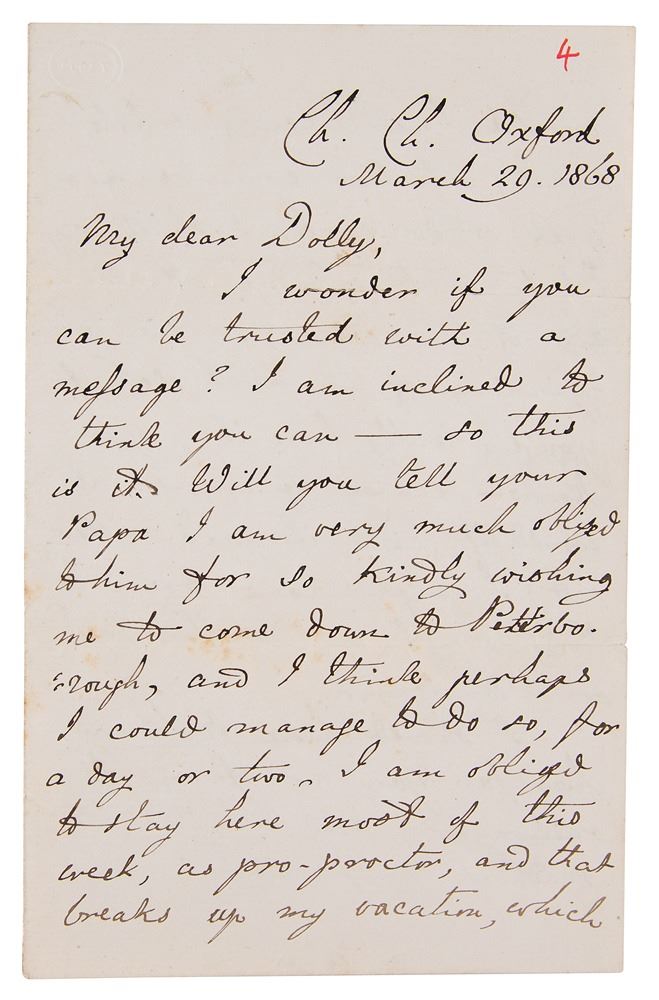 4
Ch. Ch. Oxford
March 29. 1868
My dear Dolly,
I wonder if you
can be trusted with a
meſsage? I am inclined to
think you can — so this
is it. Will you tell your
Papa I am very much obliged
to him for so kindly wishing
me to come down to Peterbo-
-rough, and I think perhaps
I could manage to do so, for
a day or two. I am obliged
to stay here most of this
week, as pro-proctor, and that
breaks up my vacation, which